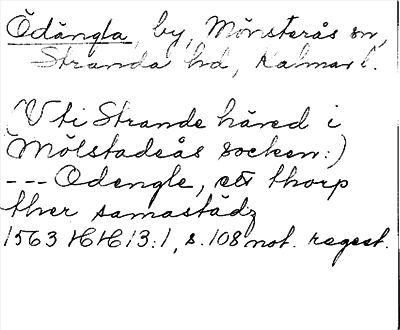 Ödängla, by, Mönsterås sn,
Stranda hd, Kalmar l.
(Vti Strande häred i
Mölstadeås socken:)
--- Odengle, ett thorp
ther samastädz
1563 HH 13:1, s. 108 not. regest.